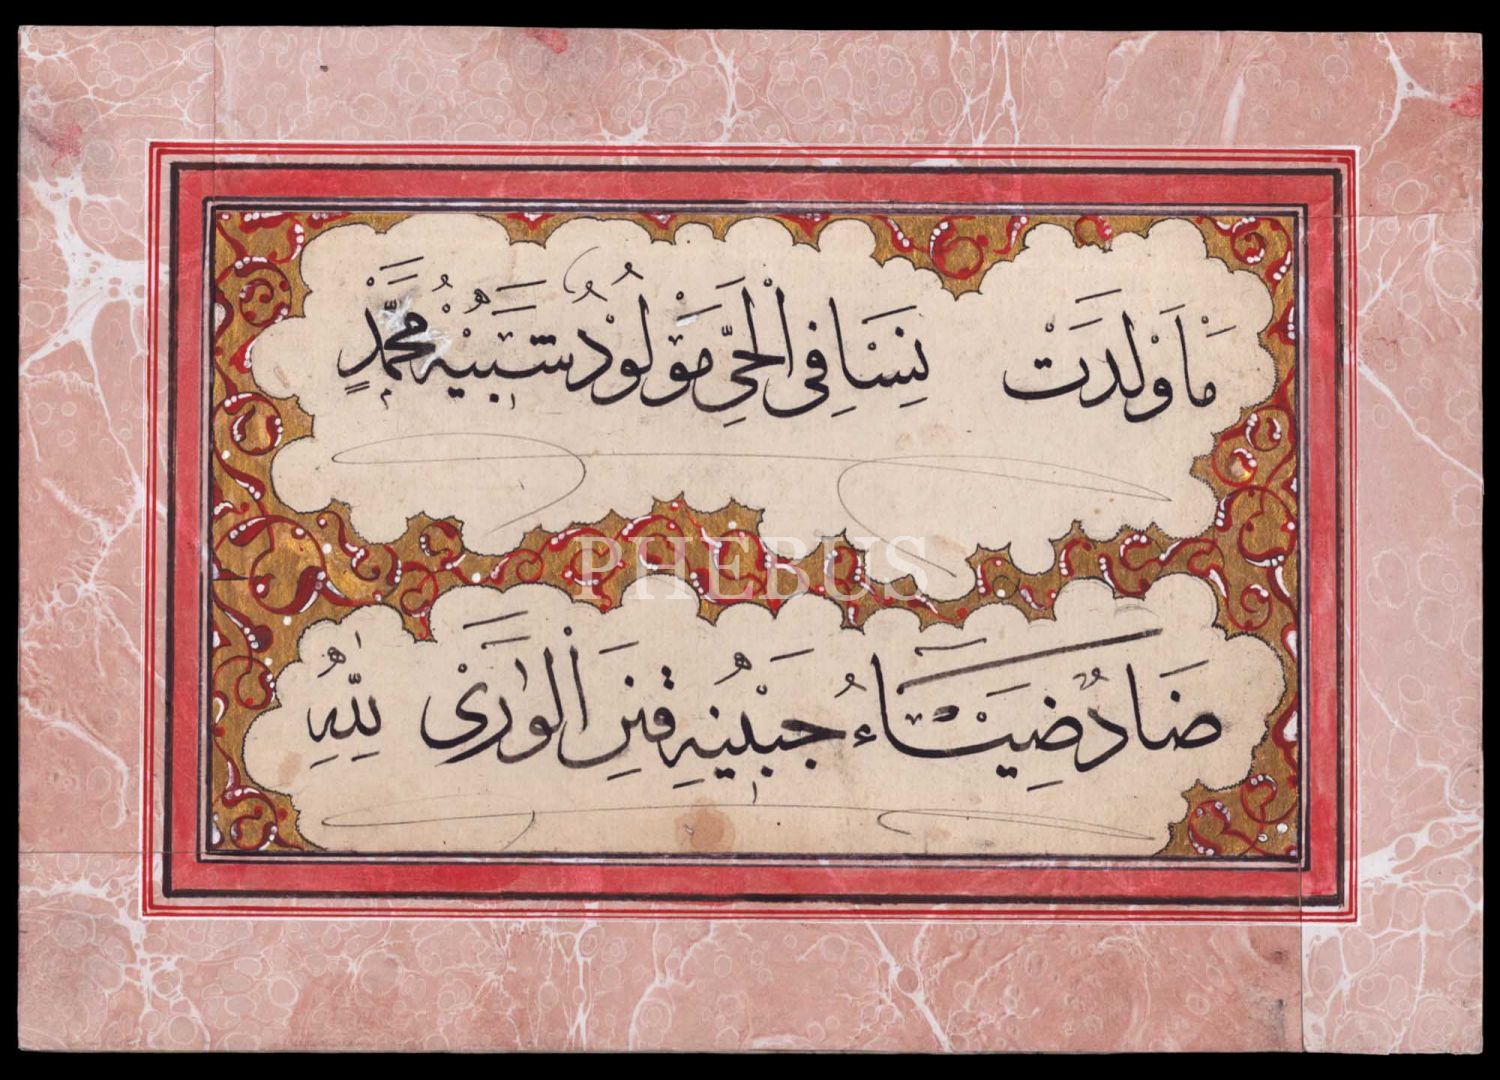 مَا وَلَدَتْ نِسَا فِي الْحَيِّ مَوْلُودُ شَبِيهُ مُحَمَّدٍ
PHEBUS
ضَادُ ضِيَاءُ جَبْينِهِ الْوَرَى لِلّٰهِ